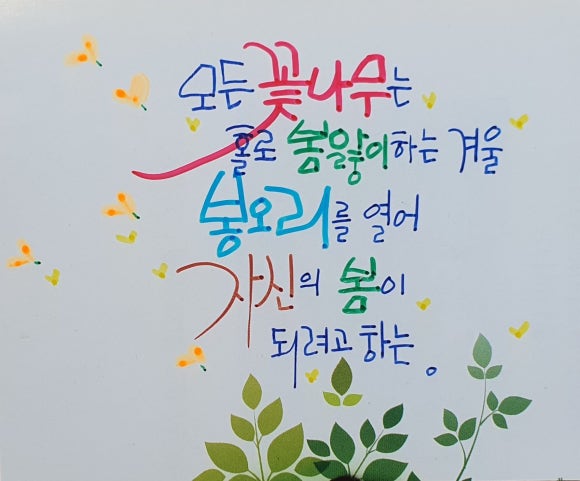 모든 꽃나무는
홀로 봄앓이하는 겨울
봉오리를 열어
자신의 봄이
되려고 하는.